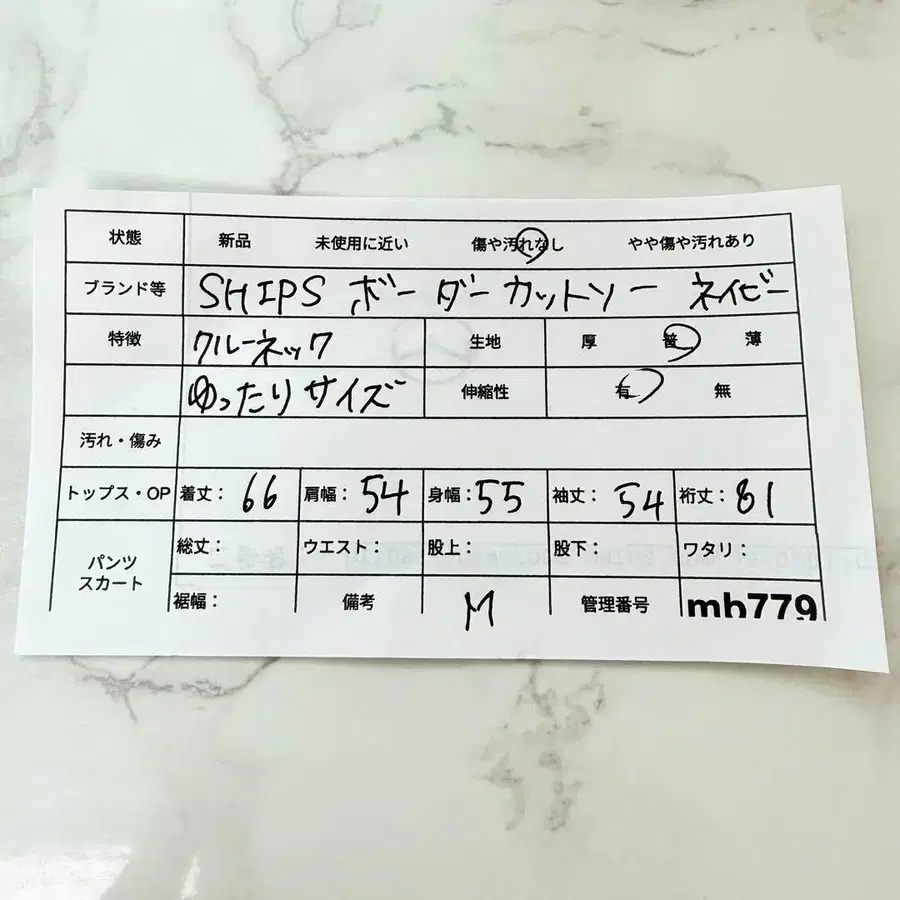 状態 新品 未使用に近い 傷や汚れなし やや傷や汚れあり
ブランド等 SHIPS ボーダーカットソー ネイビー
特徴 クルーネック 生地 厚 普 薄
ゆったりサイズ 伸縮性 有 無
汚れ・傷み
トップス・OP 着丈： 66 肩幅： 54 身幅： 55 袖丈： 54 裄丈： 81
パンツ 総丈： ウエスト： 股上： 股下： ワタリ：
スカート
裾幅： 備考 M 管理番号 mb779